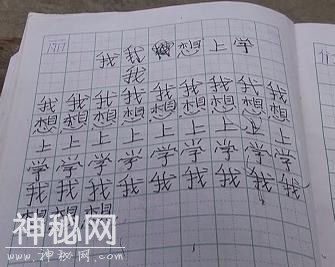 我我想上学
我
我我我我我我我我我
想想想想想想想想想
上上上上上上上上上
学学学学学学学学学
我我我我我我我我我
想想想
神秘网